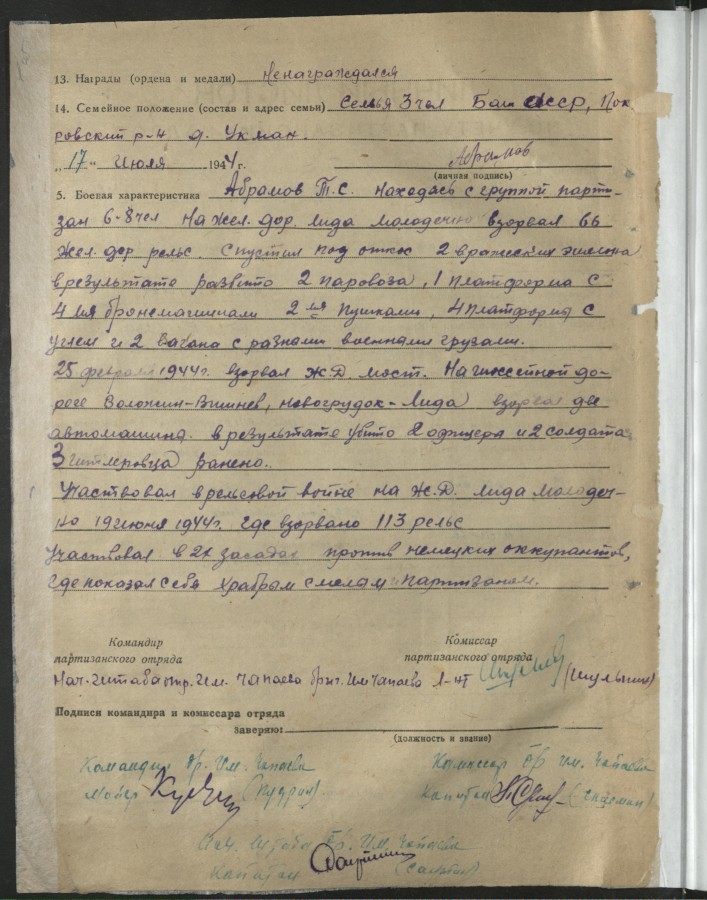 13. Награды (ордена и медали) Ненаграждался
14. Семейное положение (состав и адрес семьи) Семья 3 чел Баш АССР, Пок
ровский р-н д. Укман.
„17" Июля 1944 г. Абрамов
(личная подпись)
5. Боевая характеристика Абрамов Т.С. находясь с группой парти-
зан 6-8 чел на жел. дор. Лида Молодечно взорвал 66
жел. дор рельс. Спустил под откос 2 вражеских эшелона
в результате разбито 2 паровоза, 1 платформа с
4 мя бронемашинами 2 мя пушками, 4 платформы с
углем и 2 вагана с разнами военнами грузами.
25 февраля 1944 г. взорвал Ж.Д. мост. На шоссейной до-
роге Воложин-Вишнев, Новогрудок-Лида взорвал две
автомашина. в результате убито 2 офицера и 2 солдата
3 гитлеровца ранено.
Участвовал в рельсовой войне на Ж.Д. Лида Молодеч-
но 19 июня 1944 г. где взорвано 113 рельс
Участвовал в 2х засадах против немецких оккупантов,
где показал себя храбрым смелам партизаном.
Командир Комиссар
партизанского отряда партизанского отряда
Нач. штаба отр. Им. Чапаева бриг. Им Чапаева Л-нт
Подписи командира и комиссара отряда
заверяю:
(должность и звание)
Командир бр. Им. Чапаева Комиссар бр Им. Чапаева
Майор Капитан
Нач. Штаба бр. Им. Чапаева
Капитан